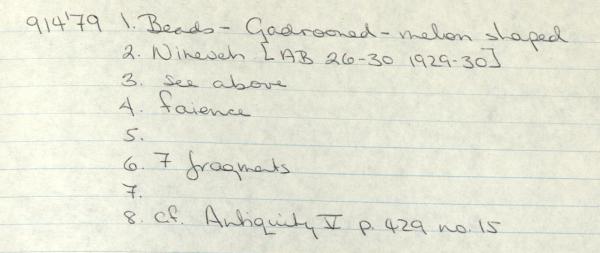 914'79 1. Beads - Gadrooned - melon shaped
2. Nineveh [AB 26-30 1929-30]
3. see above
4. faience
5.
6. 7 fragments
7.
8. cf. Antiquity V p. 429 no. 15